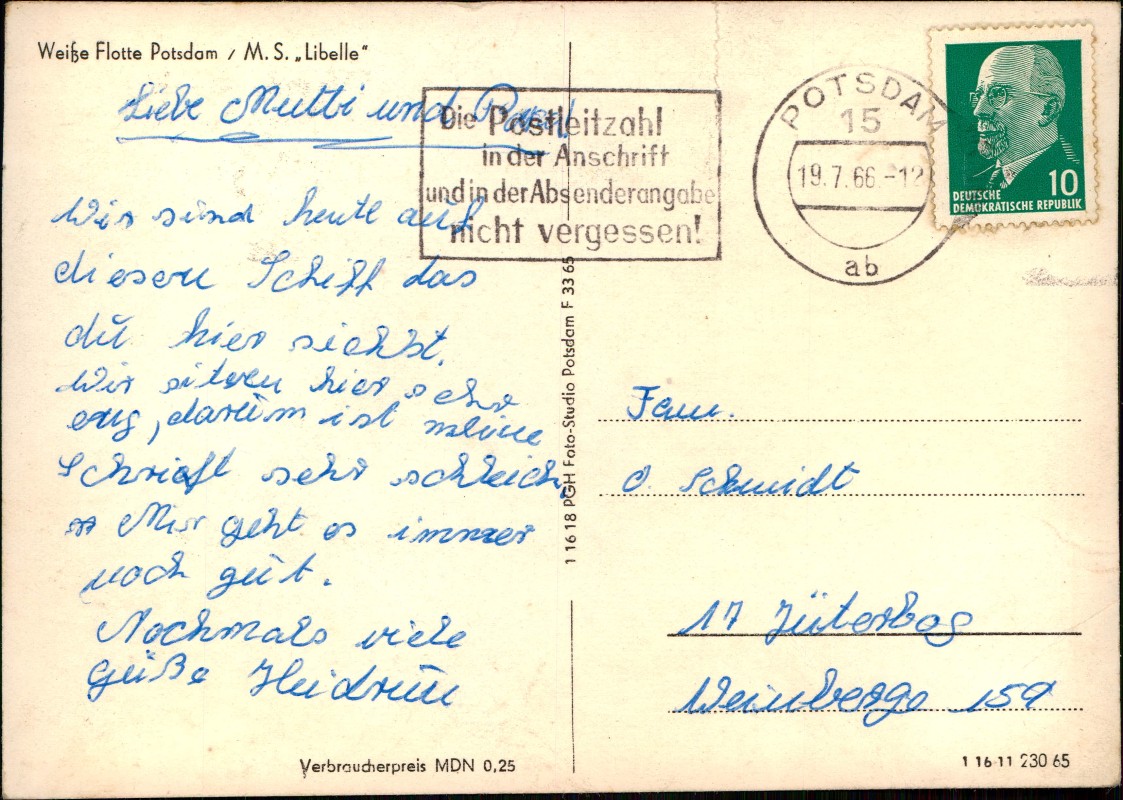 Weiße Flotte Potsdam / M. S. „Libelle"
Liebe Mutti und
Wir sind heute auf
diesem Schiff das
du hier siehst.
Wir sitzen hier sehr
eng, darum ist meine
Schrieft sehr schleich,
Mir geht es immer
noch gut.
Nochmals viele
Grüße Heidrun
Verbraucherpreis MDN 0,25
Die Postleitzahl
in der Anschrift
und in der Absenderangabe
nicht vergessen!
POTSDAM
15
19.7.66.-12
ab
10
DEUTSCHE
DEMOKRATISCHE REPUBLIK
1 16 18 PGH Foto-Studio Potsdam F 33 65
Fam.
O. Schmidt
17 Jüterbog
Weinberge 159
1 16 11 230 65